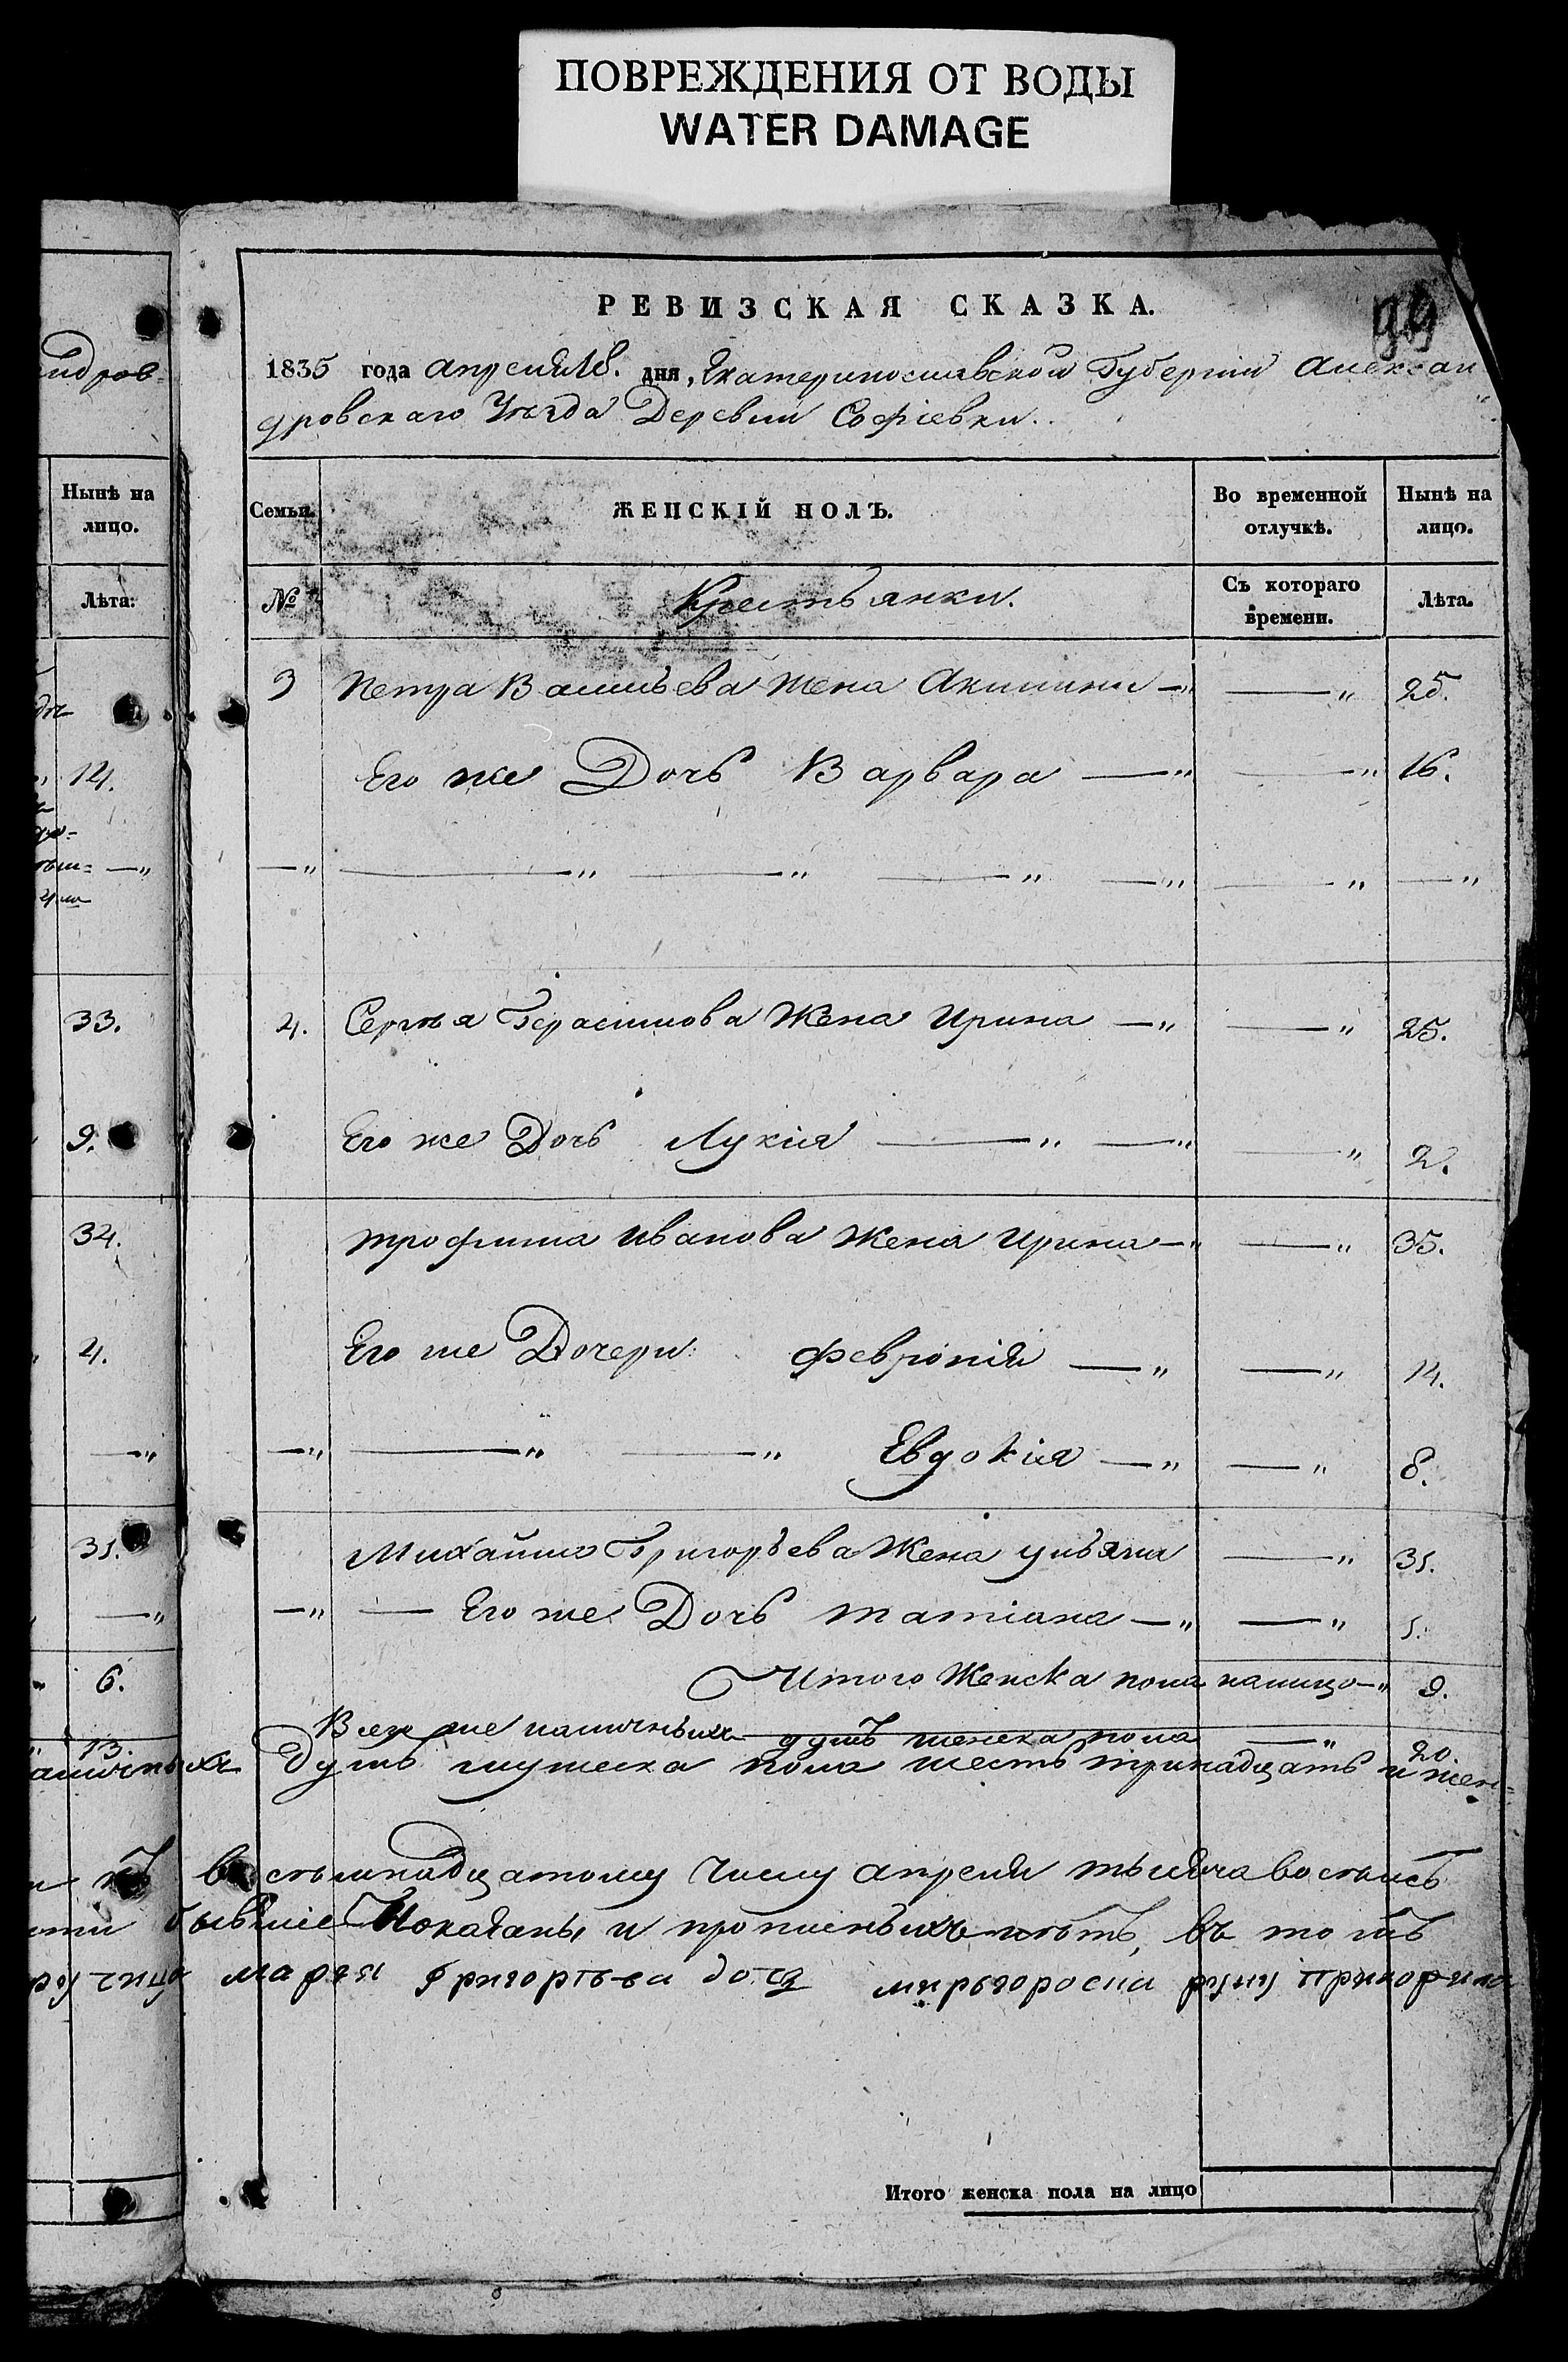 ПОВРЕЖДЕНИЯ ОТ ВОДЫ
WATER DAMAGE
РЕВИЗСКАЯ СКАЗКА.
99
1835 года апреля 18. дня, Екатеринославской Губернии Алексан
дровскаго Уѣзда Деревни Софіевки.
ндров-
Нынѣ на
лицо.
Лѣта:
Семьи.
ЖЕНСКІЙ ПОЛЪ.
Во временной
отлучкѣ.
Нынѣ на
лицо.
№
Крестьянки.
Съ котораго
времени.
Лѣта.
3 Петра Васильева жена Акилина —„ —„ 25.
14. Его же Дочь Варвара —„ —„ 16.
—„ —„ —„ —„ —„ —„ —„ —„
33. 4. Сергѣя Герасимова Жена Ирина —„ —„ 25.
9. Его же Дочь Лукія —„ —„ —„ 2.
34. трофима Иванова Жена Ирина —„ —„ 35.
4. Его же Дочери: Февронія —„ —„ 14.
—„ —„ —„ —„ Евдокія —„ —„ 8.
31. Михайла Григорьева Жена ульяна —„ 31.
—„ —„ — Его же Дочь татіана —„ —„ 1.
6. Итого Женска пола налицо —„ 9.
13. Всех же наличныхъ душъ женска пола —„ 20.
аличныхъ душъ мужеска пола шесть тринадцать и жен-
къ восемнадцатому Числу апреля тысяча восемьсъ
бывшіе Показаны и прописныхъ нѣтъ, въ томъ
марья Григорьева дочь
Итого женска пола на лицо